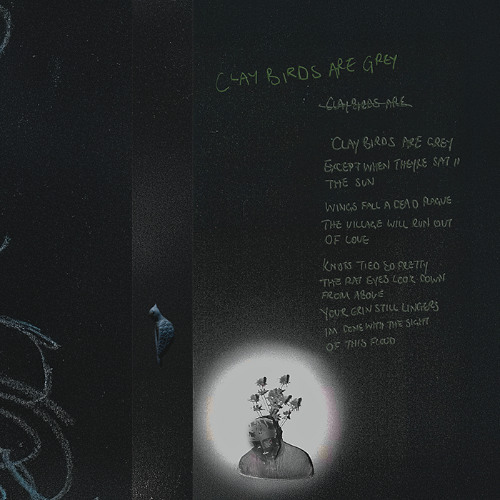 CLAY BIRDS ARE GREY
CLAY BIRDS ARE
CLAY BIRDS ARE GREY
EXCEPT WHEN THEY'RE SAT
THE SUN
WINGS FALL A DEAD PLAGUE
THE VILLAGE WILL RUN OUT
OF LOVE
KNOTS TIED SO PRETTY
THE RAT EYES LOOK DOWN
FROM ABOVE
YOUR GRIN STILL LINGERS
IM DONE WITH THE SIGHT
OF THIS FLOOD